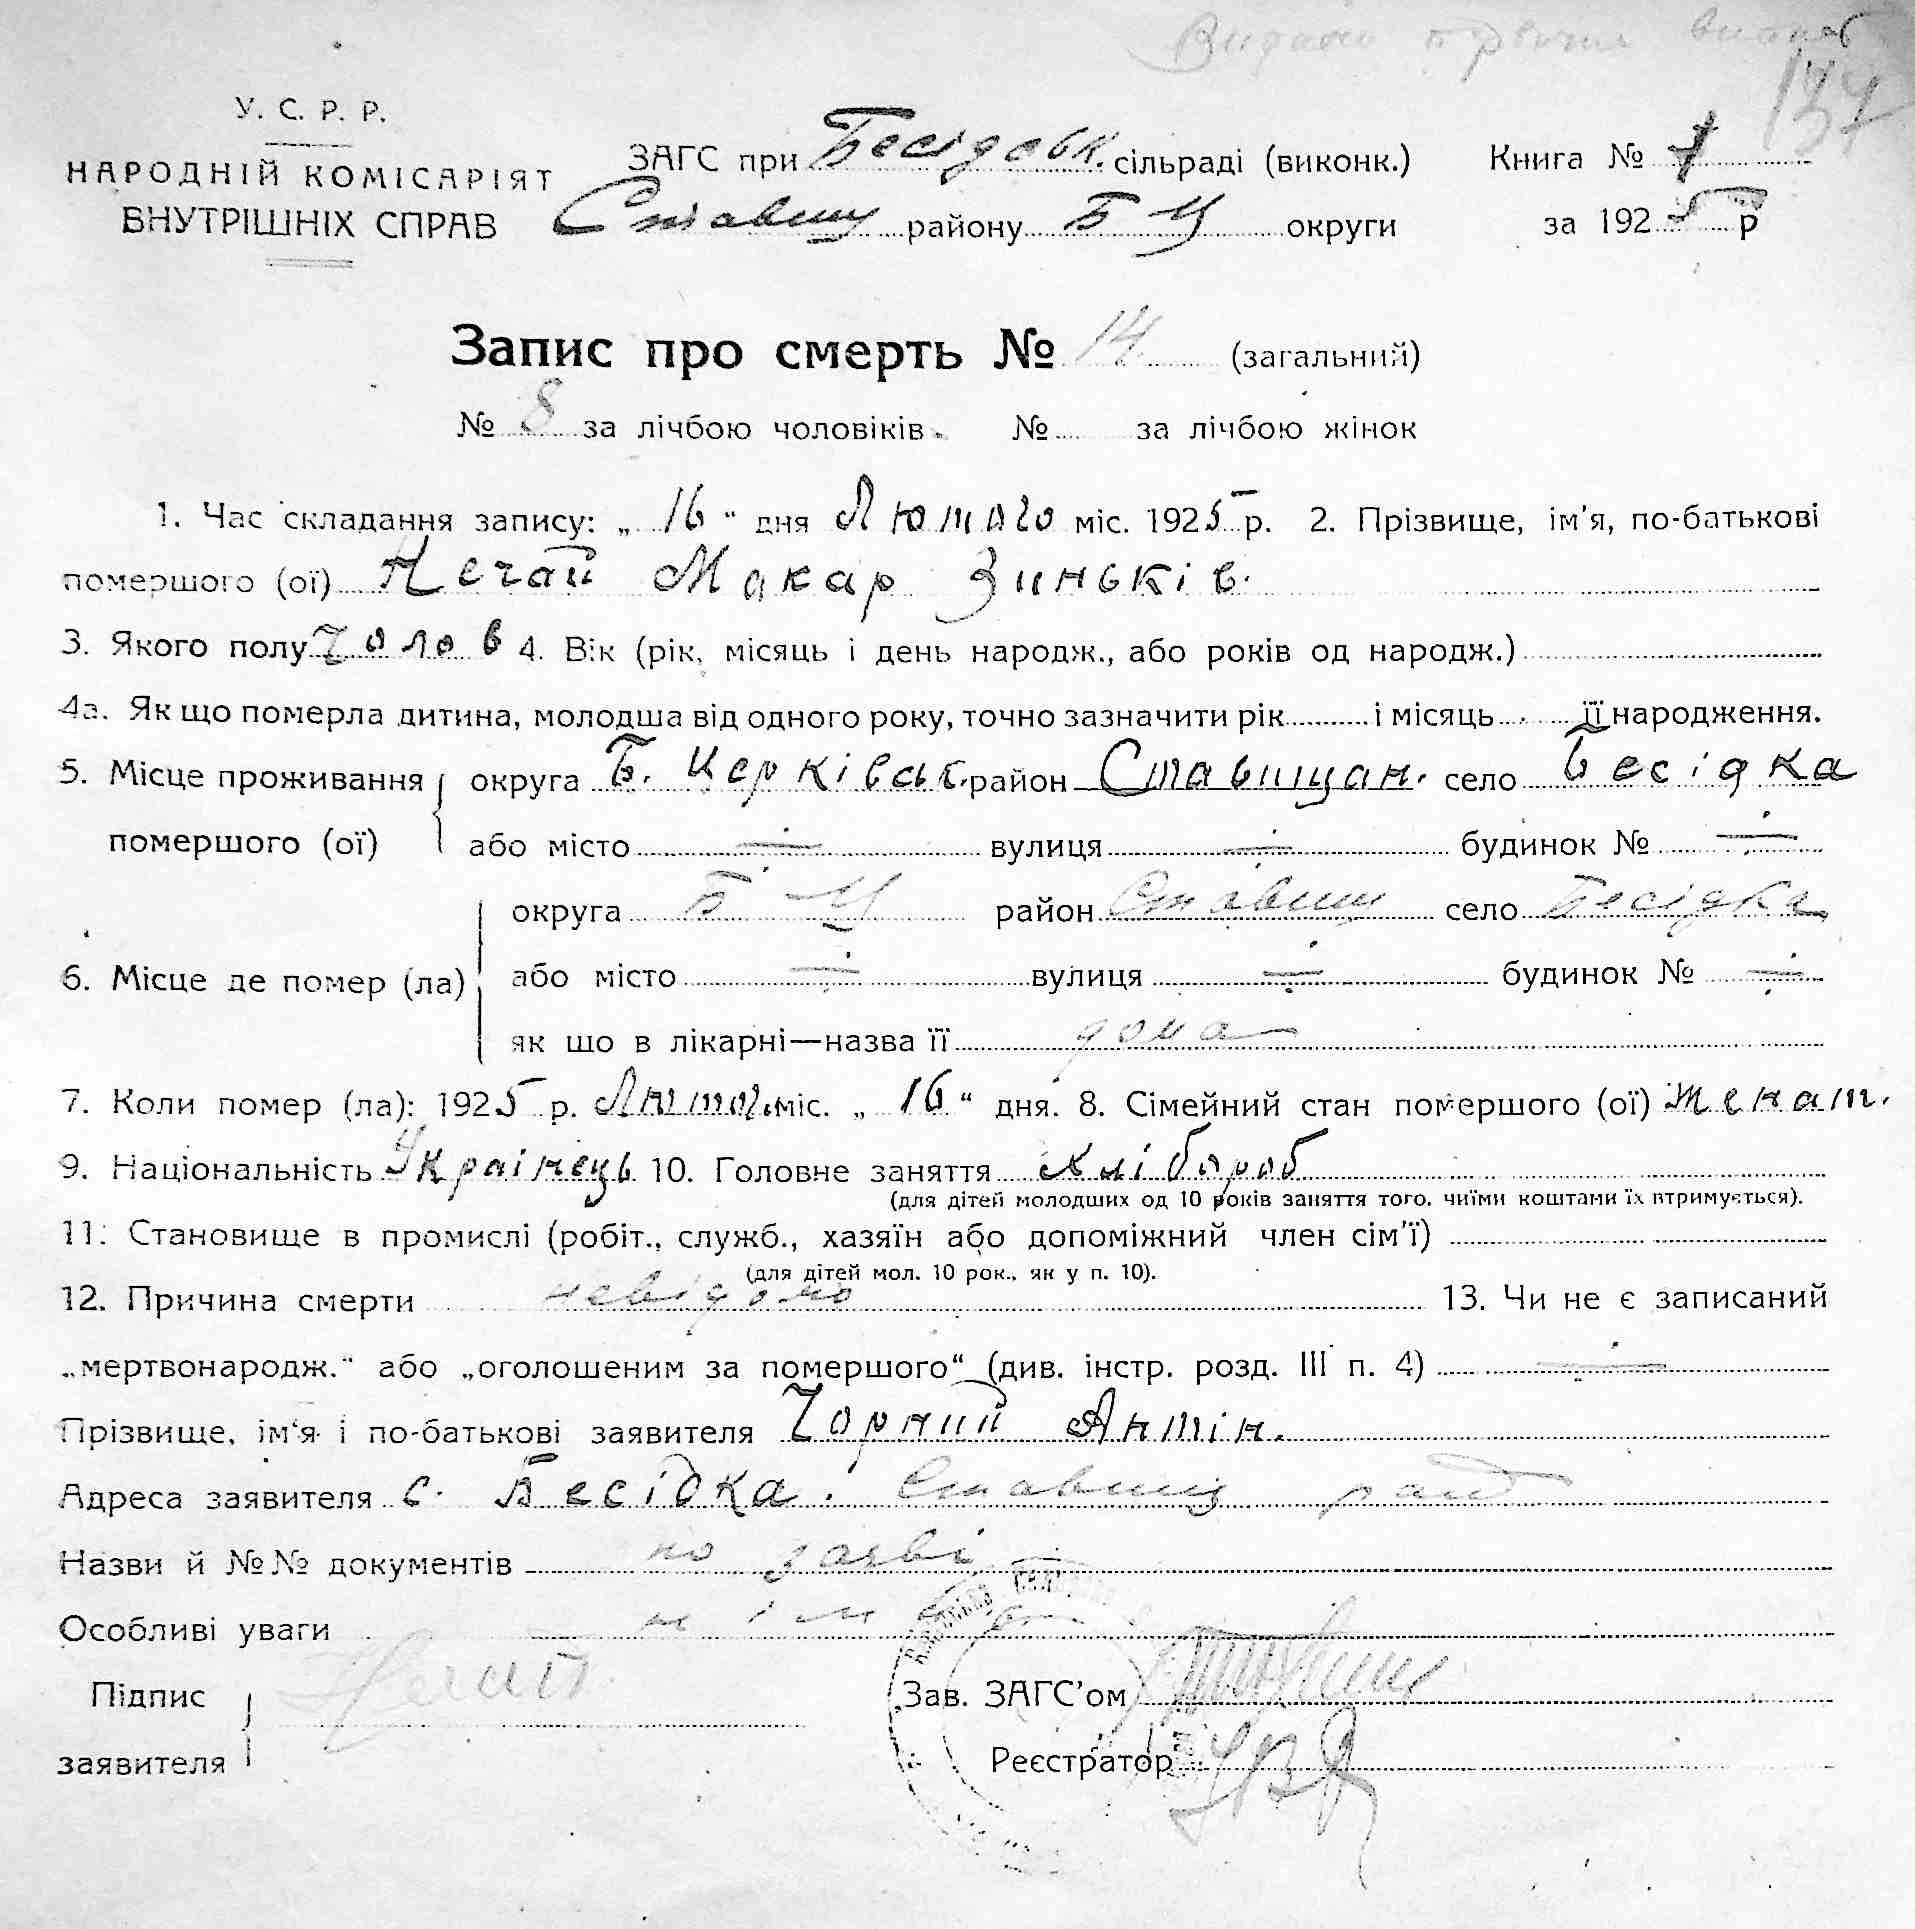 137
У. С. Р. Р.
НАРОДНІЙ КОМІСАРІЯТ
ВНУТРІШНІХ СПРАВ
ЗАГС при Бесідськ. сільраді (виконк.) Книга №
Ставищ району Б Ц округи за 1925 р
Запис про смерть № 14 (загальний)
№ 8 за лічбою чоловіків. № за лічбою жінок
1. Час складання запису: „16“ дня Лютого міс. 1925 р. 2. Прізвище, ім'я, по-батькові
помершого (ої) Нечай Макар Зиньків.
3. Якого полу Чолов 4. Вік (рік, місяць і день народж., або років од народж.)
4а. Як що померла дитина, молодша від одного року, точно зазначити рік і місяць її народження.
5. Місце проживання округа Б. Церківськ. район Ставищан. село Бесідка
помершого (ої) або місто вулиця будинок №
округа Б Ц район Ставищ село Бесідка
6. Місце де помер (ла) або місто вулиця будинок №
як що в лікарні—назва її дома
7. Коли помер (ла): 1925 р. Лютог. міс. „16“ дня. 8. Сімейний стан помершого (ої) женат.
9. Національність Українець 10. Головне заняття хлібороб
(для дітей молодших од 10 років заняття того, чиїми коштами їх втримується).
11. Становище в промислі (робіт., служб., хазяїн або допоміжний член сім'ї)
(для дітей мол. 10 рок., як у п. 10).
12. Причина смерти невідомо 13. Чи не є записаний
„мертвонародж.“ або „оголошеним за помершого“ (див. інстр. розд. III п. 4)
Прізвище, ім'я і по-батькові заявителя Чорний Антін.
Адреса заявителя с. Бесідка. Ставищ рай
Назви й №№ документів по заяві
Особливі уваги
Підпис
заявителя
Зав. ЗАГС'ом
Реєстратор